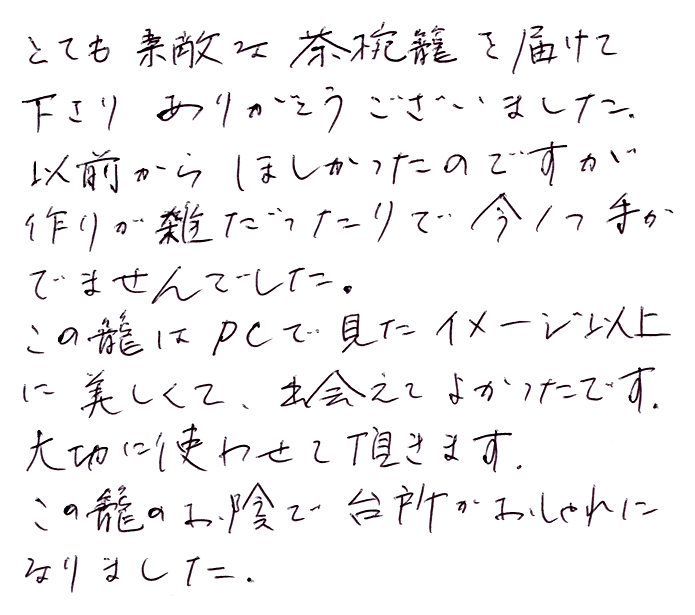 とても素敵な茶椀籠を届けて
下さり ありがとうございました.
以前から ほしかったのですが
作りが雑だったりで 今1つ手が
でませんでした。
この籠は PCで見たイメージ以上
に美しくて、出会えて よかったです.
大切に使わせて頂きます.
この籠のお陰で台所がおしゃれに
なりました.